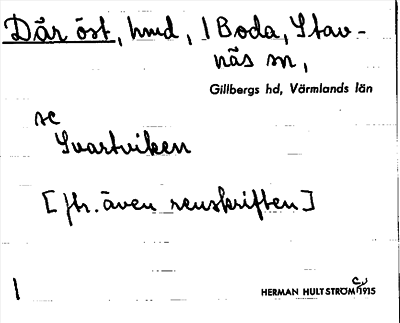 Där öst, hmd, i Boda, Stav-
näs sn,
Gillbergs hd, Värmlands län
se
Svartviken
[jfr. även renskriften]
HERMAN HULTSTRÖM 1915